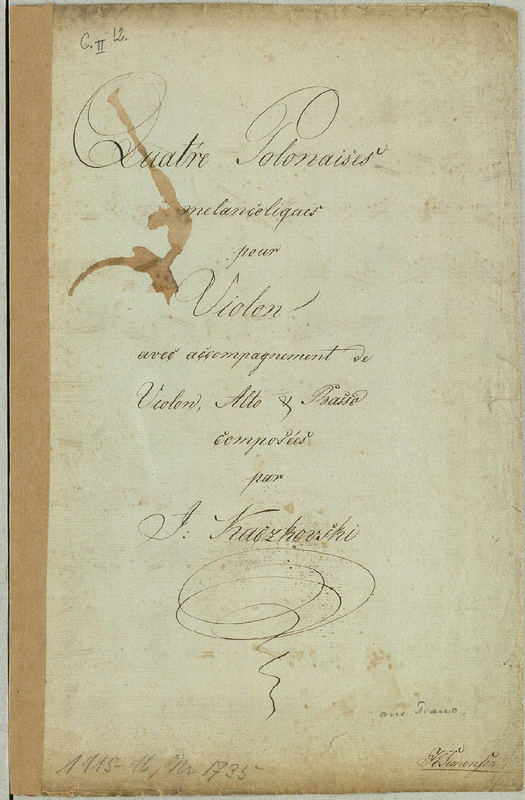 C. II 12.
Quatre Polonaises
melancoliques
pour
Violon
avec accompagnement de
Violon, Alto & Basso
composées
par
J: Kaczkowski
avec Piano.
1915-16, Nr 1735